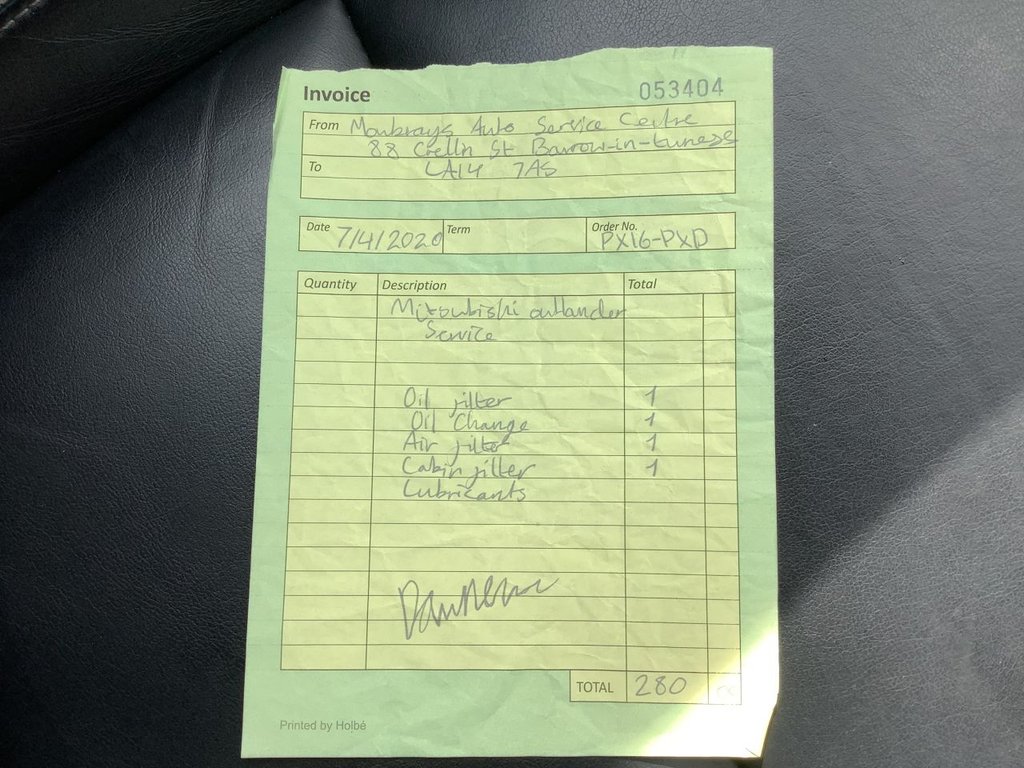 Invoice 053404
From Mowbrays Auto Service Centre
88 Crelln St Barrow-in-turness
To LA14 7AS
Date 7/4/2020 Term Order No. PX16-PXD
Quantity Description Total
Mitsubishi outlander
Service
Oil filter 1
Oil Change 1
Air filter 1
Cabin filter 1
Lubricants
TOTAL 280
Printed by Holbé